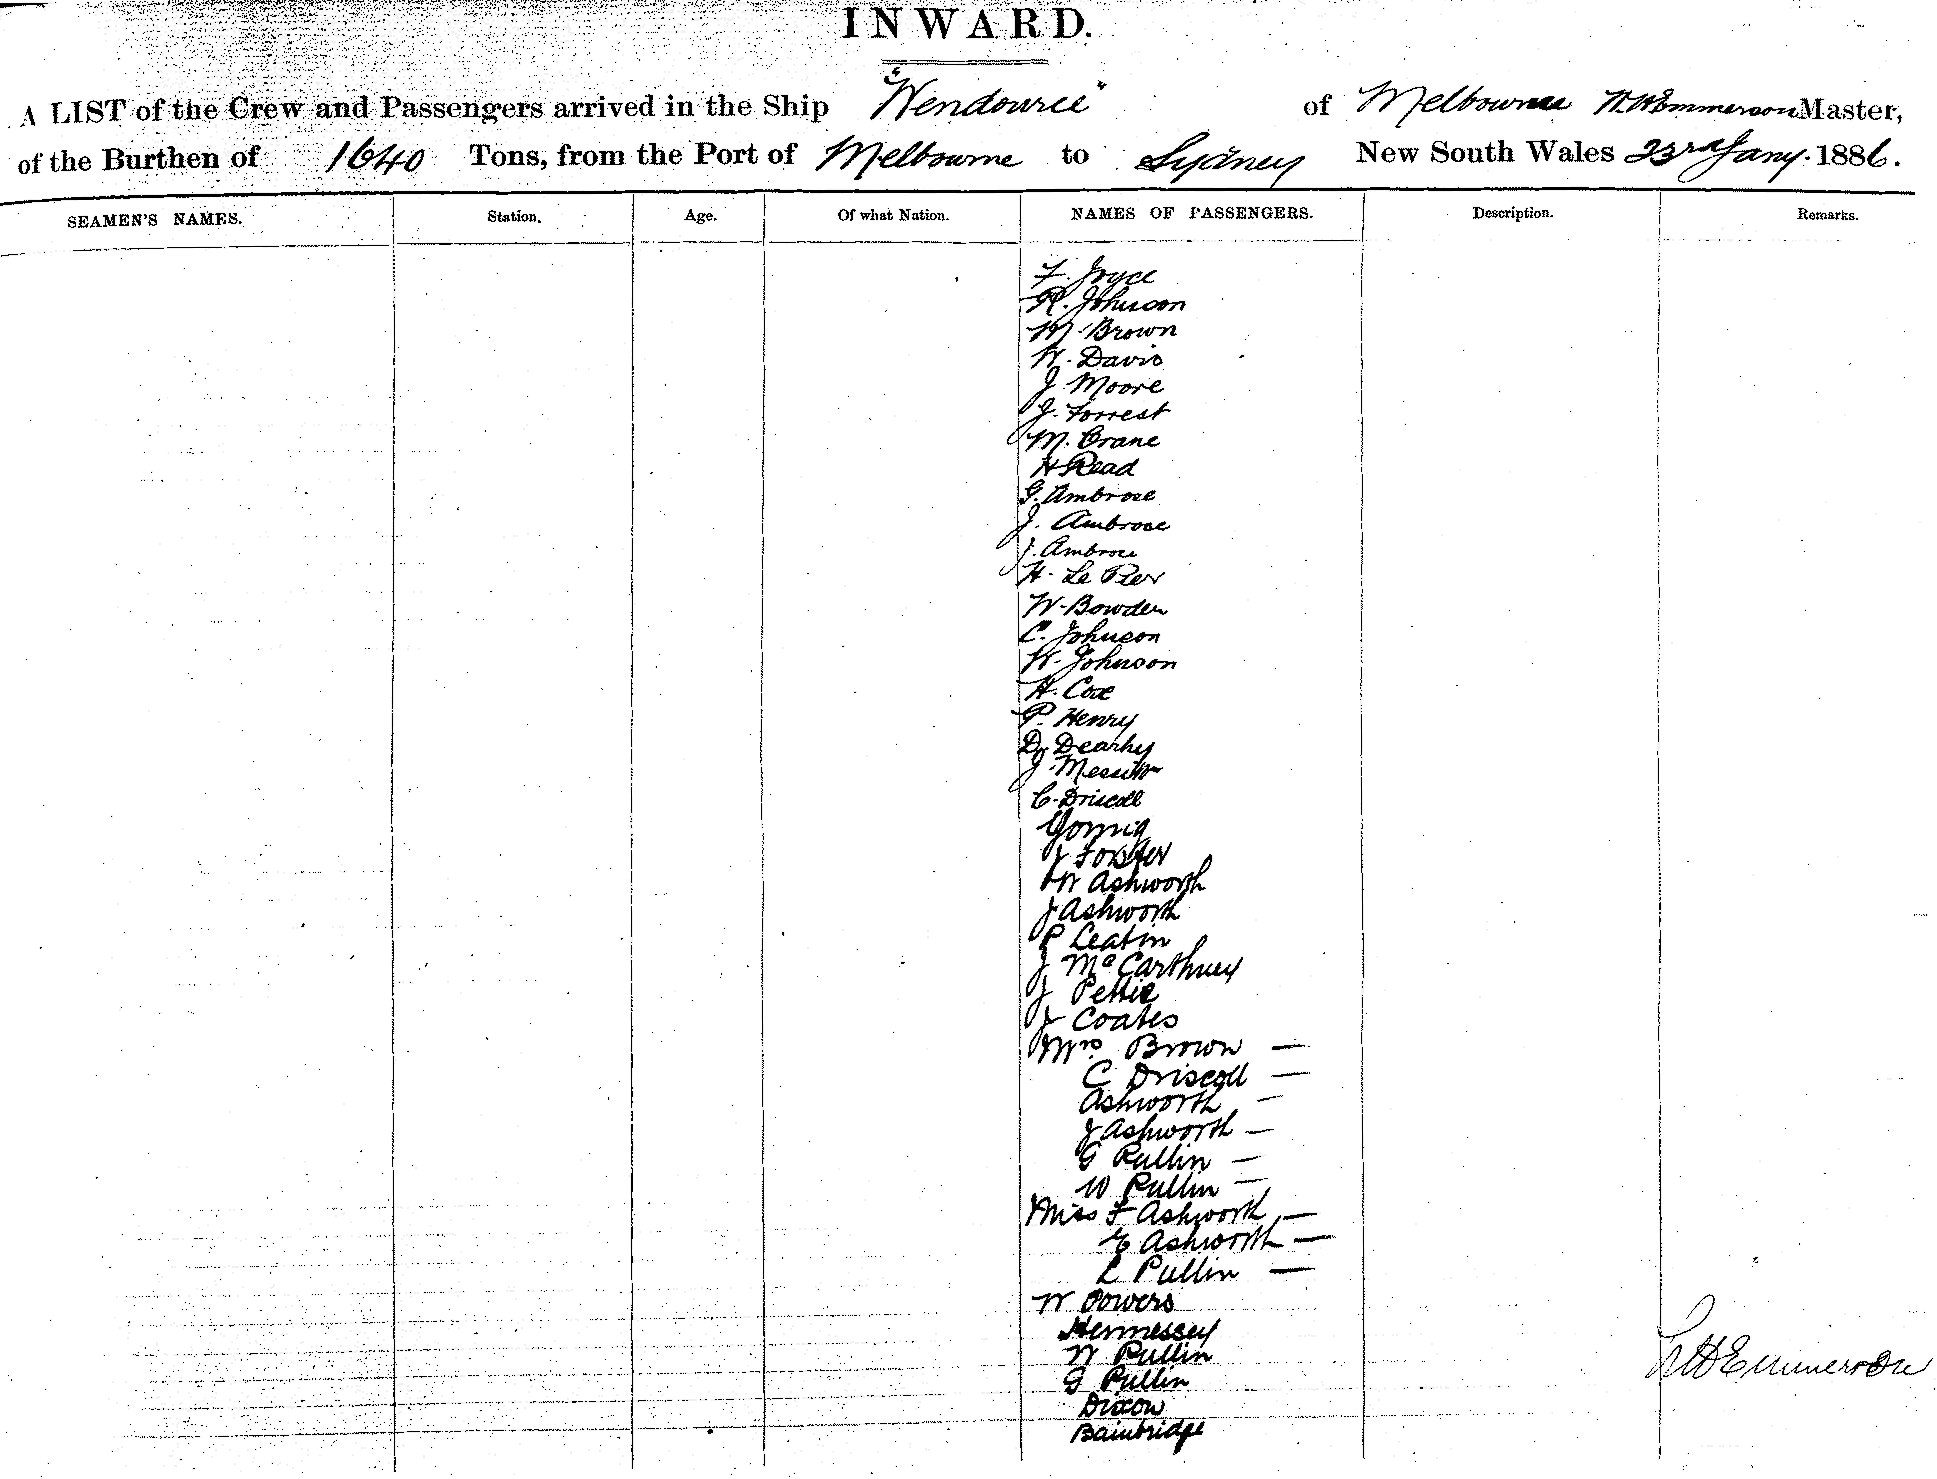 INWARD.
A LIST of the Crew and Passengers arrived in the Ship "Wendouree" of Melbourne Emmerson Master,
of the Burthen of 1640 Tons, from the Port of Melbourne to Sydney New South Wales 23rd Jany. 1886.
SEAMEN'S NAMES. Station. Age. Of what Nation. NAMES OF PASSENGERS. Description. Remarks.
F. Joyce
R. Johnson
M. Brown
W. Davis
J. Moore
J. Forrest
M. Crane
H Read
G. Ambrose
J. Ambrose
J. Ambrose
H. Le
W. Bowden
C. Johnson
W. Johnson
H. Cox
P. Henry
D.
J.
C. Driscoll
J
W Ashworth
J Ashworth
P
J
J Pettie
J Coates
Mrs Brown —
C Driscoll —
Ashworth —
J Ashworth —
G Pullin —
W Pullin —
Miss F Ashworth —
E Ashworth —
L Pullin —
W Powers
Hennessey
W Pullin
G Pullin
Dixon
Bainbridge
Emmerson